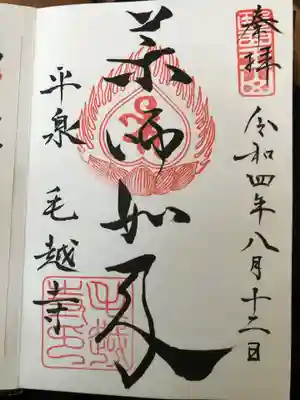 奉拝
令和四年八月十二日
薬師如来
平泉 毛越寺
毛越
寺印